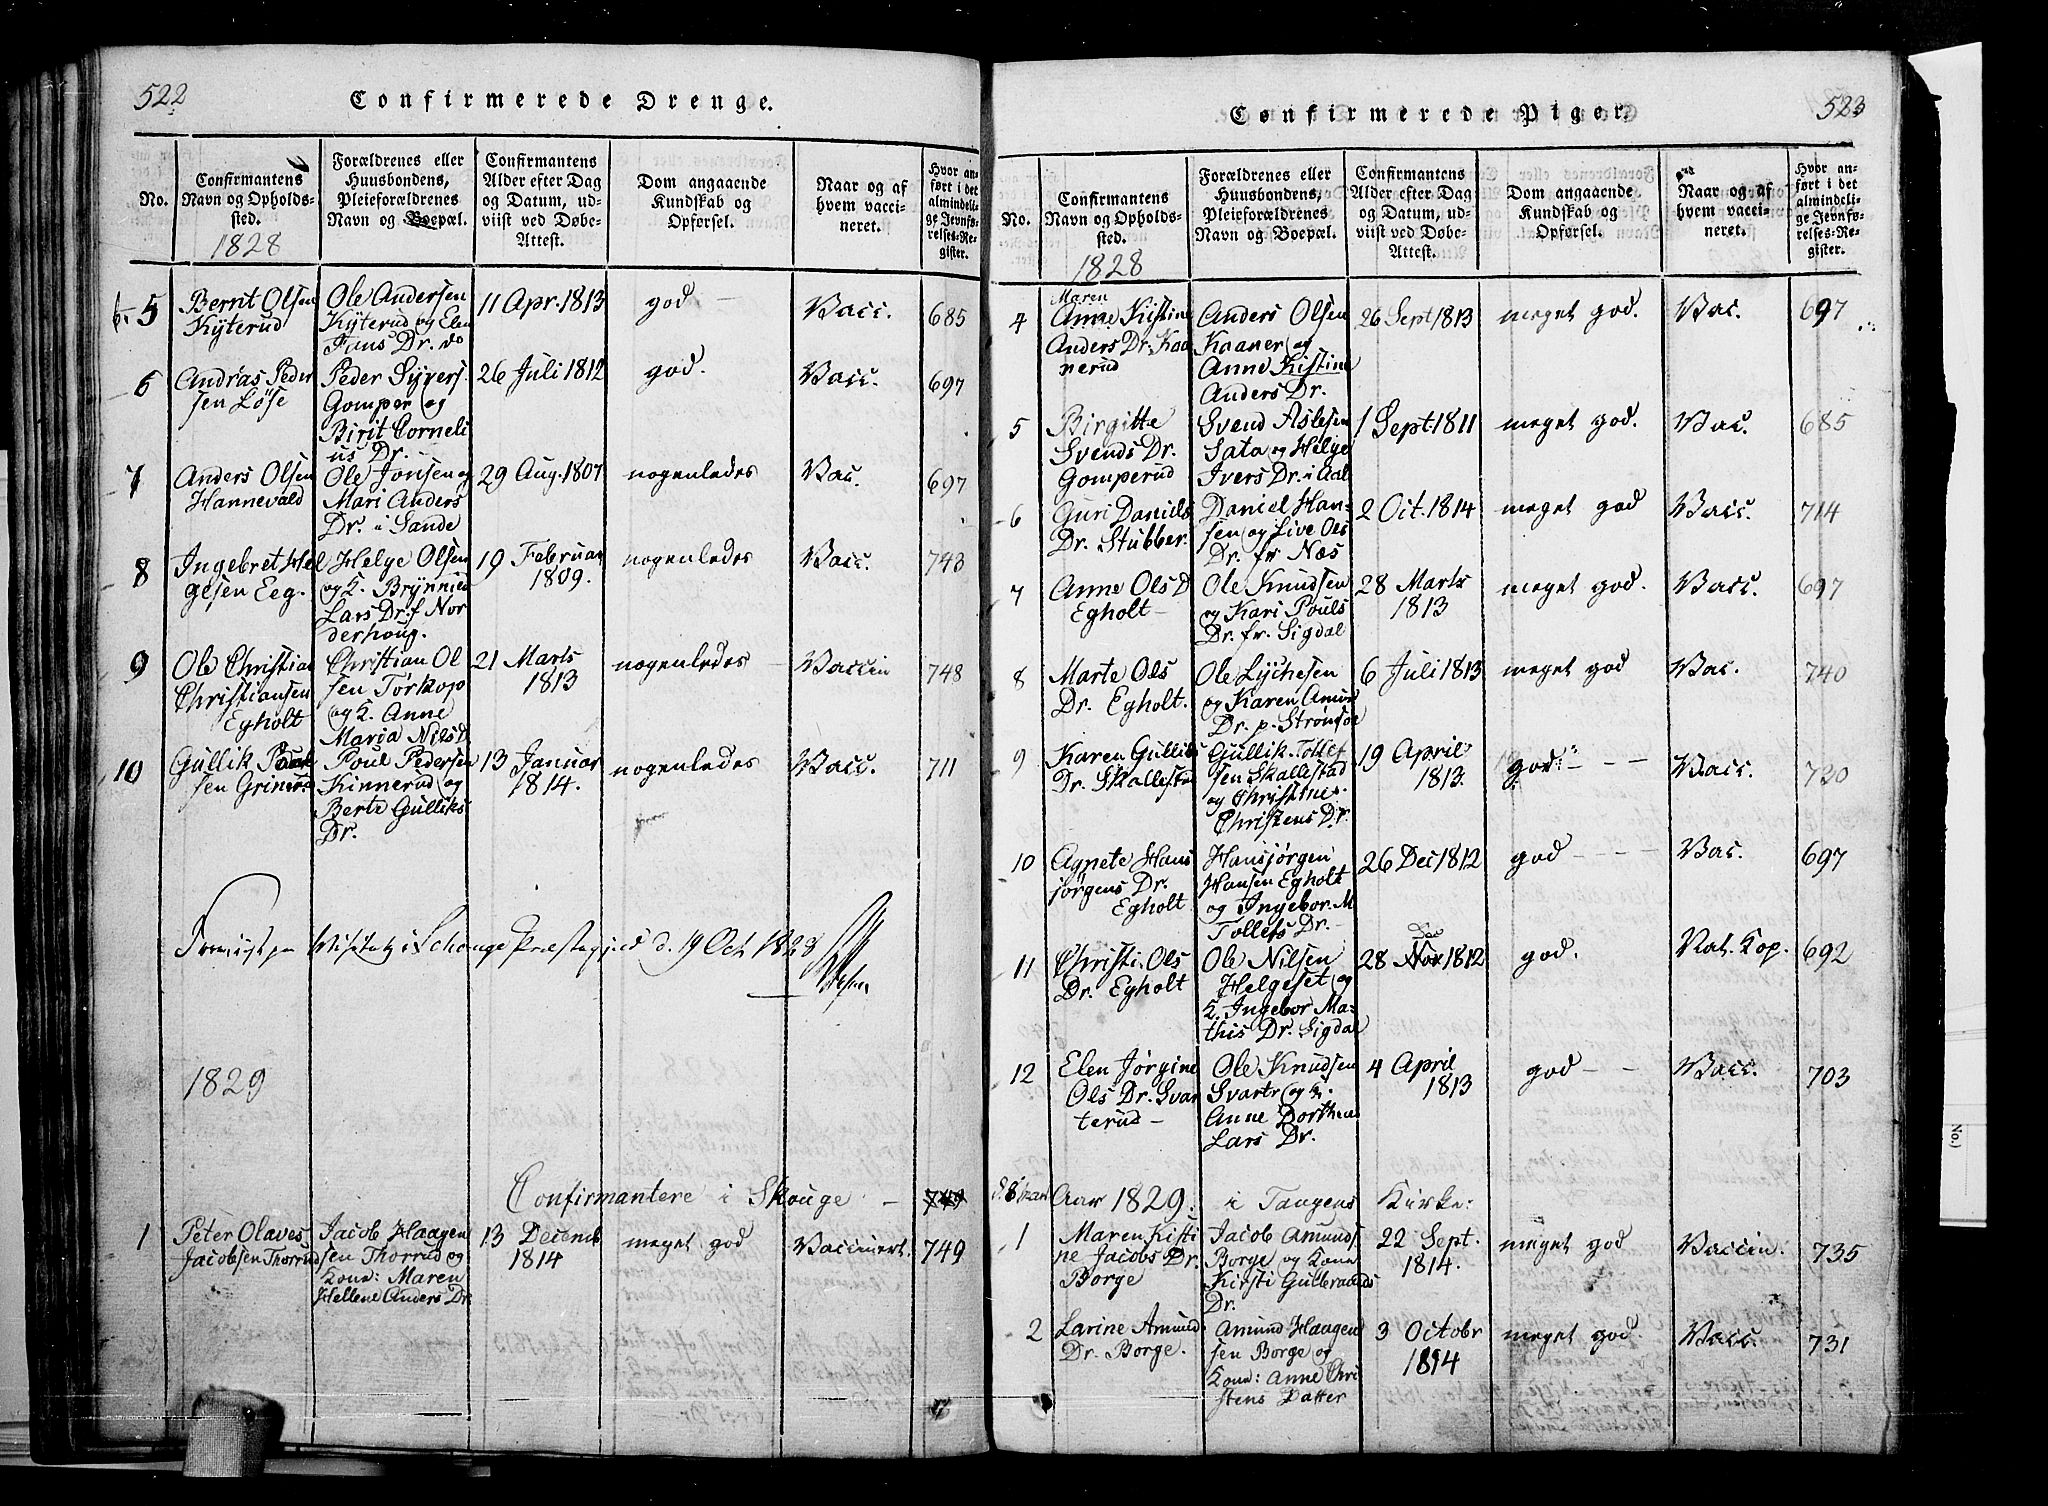 522
Confirmerede Drenge.
No.
Confirmantens
Navn og Opholds-
sted.
1828
Forældrenes eller
Huusbondens,
Pleieforældrenes
Navn og Boepæl.
Confirmantens
Alder efter Dag
og Datum, ud-
viist ved Døbe-
Attest.
Dom angaaende
Kundskab og
Opførsel.
Naar og af
hvem vacci-
neret.
Hvor an-
ført i det
almindeli-
ge Jevnfø-
relses-Re-
gister.
5
Berrit Olsen
Kÿterud
Ole Andersen
Kÿterud og Elen
Fans Dr. do
11 Apr. 1813
god
Vacc.
685
6
Andras Peder
sen Löse
Peder Syvers.
Gomper og
Birit Corneli
us Dr.
26 Juli 1812
god.
Vacc.
697
7
Anders Olsen
Hannevald
Ole Jonsen og
Mari Anders
Dr. i Sande
29 Aug. 1807
nogenledes
Vac.
697
8
Ingebret Hel
gesen Eeg.
Helge Olsen
og K. Brynnild
Lars Dr. f. Nor
derhoug.
19 Februar
1809.
nogenledes
Vacc.
743
9
Ole Christian
Christiansen
Egholt
Christian Ol
sen Tørkop
og K. Anne
Maria Nils D
21 Marts
1813
nogenledes
Vaccin
748
10
Gullik Poul
sen Grinerud
Poul Pedersen
Kinnerud og
Berte Gulliks
Dr.
13 Januar
1814.
nogenledes
Vacc.
711
Visitatz i Schouge Præstegjeld d. 19 Oct 1828
1829
Confirmantere i Skouge
749
1
Peter Olaves
Jacobsen Thorrud
Jacob Haagen
sen Thorrud og
Kone: Maren
Hellene Anders Dr.
13 Decemb
1814
meget god
Vaccinert.
749
523
Confirmerede Piger.
No.
Confirmantens
Navn og Opholds-
sted.
1828
Forældrenes eller
Huusbondens,
Pleieforældrenes
Navn og Boepæl.
Confirmantens
Alder efter Dag
og Datum, ud-
viist ved Døbe-
Attest.
Dom angaaende
Kundskab og
Opførsel.
Naar og af
hvem vacci-
neret.
Hvor an-
ført i det
almindeli-
ge Jevnfø-
relses-Re-
gister.
4
Maren
Anne Kistine
Anders Dr. Kaa
nerud
Anders Olsen
Kaaner og
Anne Kistine
Anders Dr.
26 Sept 1813
meget god.
Vac.
697
5
Birgitte
Svends Dr.
Gomperud
Svend Aslesen
Sata og Helge
Ivers Dr. i Aal
1 Sept. 1811
meget god.
Vac.
685
6
Guri Daniels
Dr. Stubber.
Daniel Han-
sen og Live Ols
Dr. fr. Næs
2 Oct. 1814
meget god
Vacc.
714
7
Anne Ols D
Egholt
Ole Knudsen
og Kari Pouls
Dr. fr. Sigdal
28 Marts
1813
meget god.
Vacc.
697
8
Marte Ols
Dr. Egholt.
Ole Lychesen
og Karen Amun
Dr. p. Strömsøe
6 Juli 1813
meget god
Vac.
740
9
Karen Gulliks
Dr. Skallestad
Gullik Tollef
sen Skallestad
og Christine
Christens Dr.
19 April
1813.
god
Vacc.
730
10
Agnete Hans
jörgens Dr.
Egholt
Hansjörgen
Hansen Egholt
og Ingebor. M
Tollefs Dr.
26 Dec 1812
god
Vac.
697
11
Christi. Ols
Dr. Egholt
Ole Nilsen
Helgeset og
K. Ingebor Ma-
this Dr. Sigdal
Dec
28 Nov 1812
god.
Nat. Kop.
692
12
Elen Jørgine
Ols Dr. Svar
terud
Ole Knudsen
Svartr og K.
Anne Dorthea
Lars Dr.
4 April
1813
god
Vacc.
703
Aar 1829. i Tangens Kirke:
1
Maren Kisti
ne Jacobs Dr.
Borge
Jacob Amunds
Borge og Kone
Kirsti Gulbrands
Dr.
22 Sept.
1814.
meget god
Vaccin.
735
2
Larine Amund
Dr. Borge.
Amund Haagen
sen Borge og
Kone: Anne Chri
stens Datter
3 Octobr
1814
meget god.
Vacc.
731
No.)